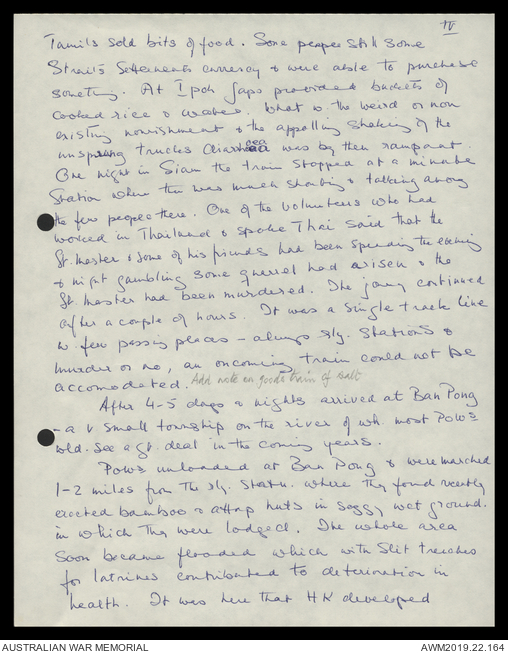 IV
Tamils sold bits of food. Some people still some
Straits Settlements currency & were able to purchase
something. At Ipoh Japs provided buckets of
cooked rice & water. What w the weird or non
existing nourishment & the appalling shaking of the
unsprung trucks diarrhoea was by then rampant.
One night in Siam the train stopped at a minute
Station where there was much shouting & talking among
the few people there. One of the volunteers who had
worked in Thailand & spoke Thai said that the
St. Master & some of his friends had been spending the evening
& night gambling some quarrel had arisen & the
St. Master had been murdered. The journey continued
after a couple of hours. It was a single track line
w. few passing places - always rly. stations &
murder or no, an oncoming train could not be
accomodated. Add note on goods train of salt
After 4-5 days & nights arrived at Ban Pong
- a v small township on the river of wh. most POWs
wld. see a gt. deal in the coming years.
POWs unloaded at Ban Pong & were marched
1-2 miles from the rly. Statn. where they found recently
erected bamboo & attap huts in soggy wet ground.
in which they were lodged. The whole area
soon became flooded which with slit trenches
for latrines contributed to deterioration in
health. It was here that HK developed
AUSTRALIAN WAR MEMORIAL
AWM2019.22.164